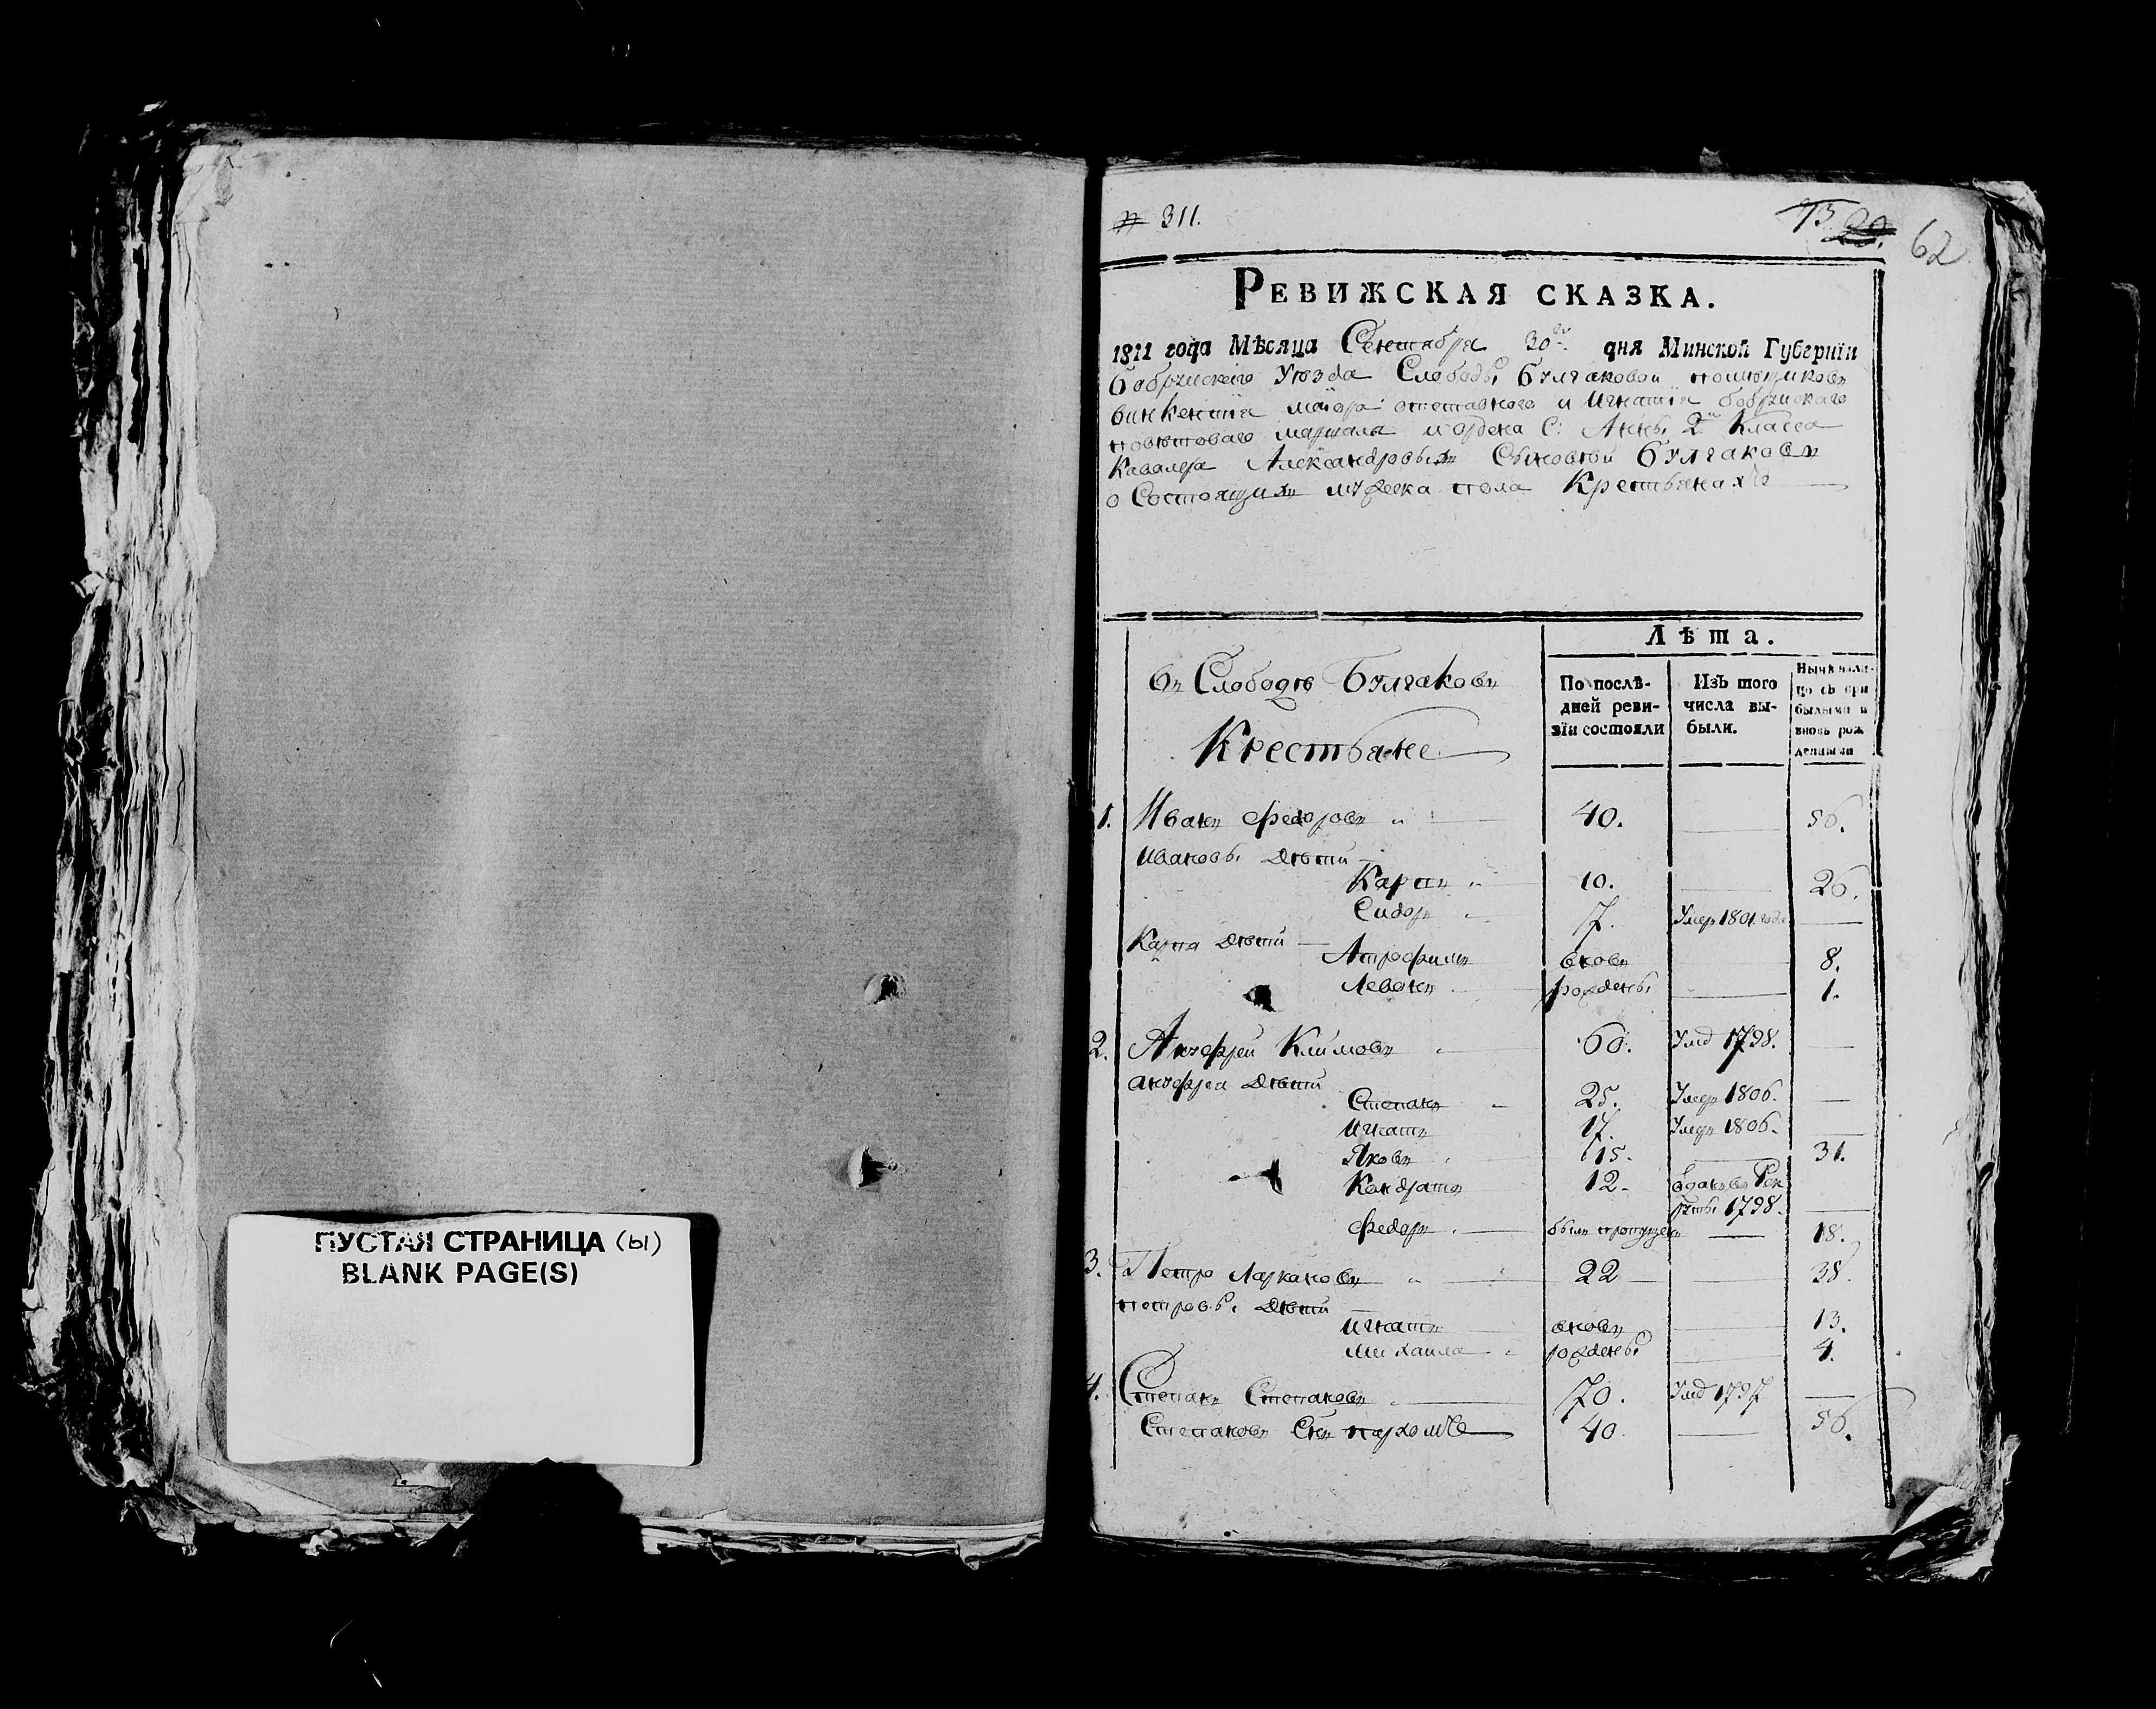 № 311.
62
РЕВИЖСКАЯ СКАЗКА.
1811 года Мѣсяца Сентября 30го дня Минской Губерніи
бобруйскаго уѣзда Слободы Булгаковой помѣщиковъ
винкентія маіора отставного и игнатія бобруйскаго
повѣтоваго маршала и ордена С: Анны 2й Класса
Кавалера Александровыхъ Сыновей Булгаковъ
о Состоящихъ мужеска пола Крестьянахъ
Лѣта.
въ Слободѣ Булгаковъ
Крестьяне
По послѣ-
дней реви-
зіи состояли
Изъ того
числа вы-
были.
Нынѣ нали-
цо съ при
былыми и
вновь рож
денными
1. Иванъ федоровъ 40. 56.
Ивановы дѣти
Карпъ 10. 26.
Сидоръ 7. Умеръ 1801 года
Карпа дѣти
Атрофимъ вновь 8.
Леванъ рождены 1.
2. Ануфрей Климовъ 60. Умд 1798.
ануфрея дѣти
Степанъ 25. Умеръ 1806.
Игнатъ 17. Умеръ 1806.
Яковъ 15. 31.
Кондратъ 12. вданъ въ Рек
руты 1798.
федоръ былъ пропущенъ 18.
3. Петро Ларкановъ 22 38.
петровы дѣти
Игнатъ вновь 13.
михаила рождены 4.
4. Степанъ Степановъ 70. Умд 1797
Степановъ Сынъ пархомъ 40 56.
ПУСТАЯ СТРАНИЦА (ы)
BLANK PAGE(S)